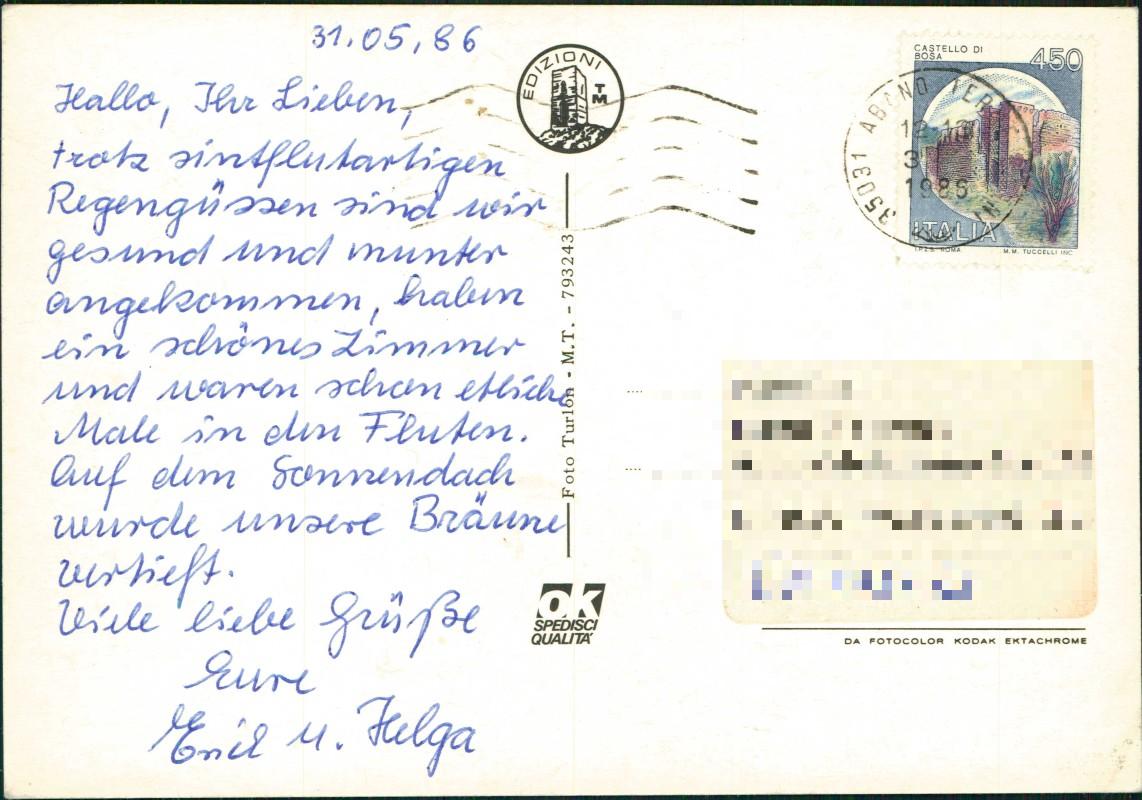 31.05.86
Hallo, Ihr Lieben,
trotz sintflutartigen
Regengüssen sind wir
gesund und munter
angekommen, haben
ein schönes Zimmer
und waren schon etliche
Male in den Fluten.
Auf dem Sonnendach
wurde unsere Bräune
vertieft.
Viele liebe Grüße
Eure
Erich u. Helga
EDIZIONI
TM
Foto Turlon - M.T. - 793243
OK
SPEDISCI
QUALITA'
CASTELLO DI
BOSA
450
ITALIA
I.P.Z.S. ROMA
M.M. TUCCELLI INC.
35031 ABANO TER
1986
DA FOTOCOLOR KODAK EKTACHROME